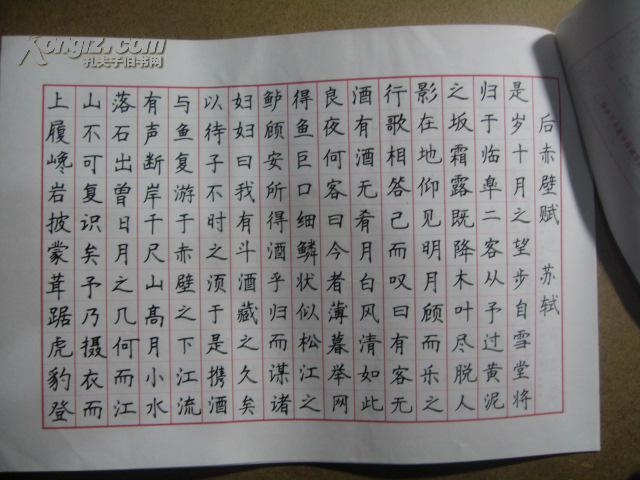 后赤壁赋 苏轼
是岁十月之望步自雪堂将
归于临皋二客从予过黄泥
之坂霜露既降木叶尽脱人
影在地仰见明月顾而乐之
行歌相答己而叹曰有客无
酒有酒无肴月白风清如此
良夜何客曰今者薄暮举网
得鱼巨口细鳞状似松江之
鲈顾安所得酒乎归而谋诸
妇妇曰我有斗酒藏之久矣
以待子不时之须于是携酒
与鱼复游于赤壁之下江流
有声断岸千尺山高月小水
落石出曾日月之几何而江
山不可复识矣予乃摄衣而
上履巉岩披蒙茸踞虎豹登
Kongfz.com
孔夫子旧书网